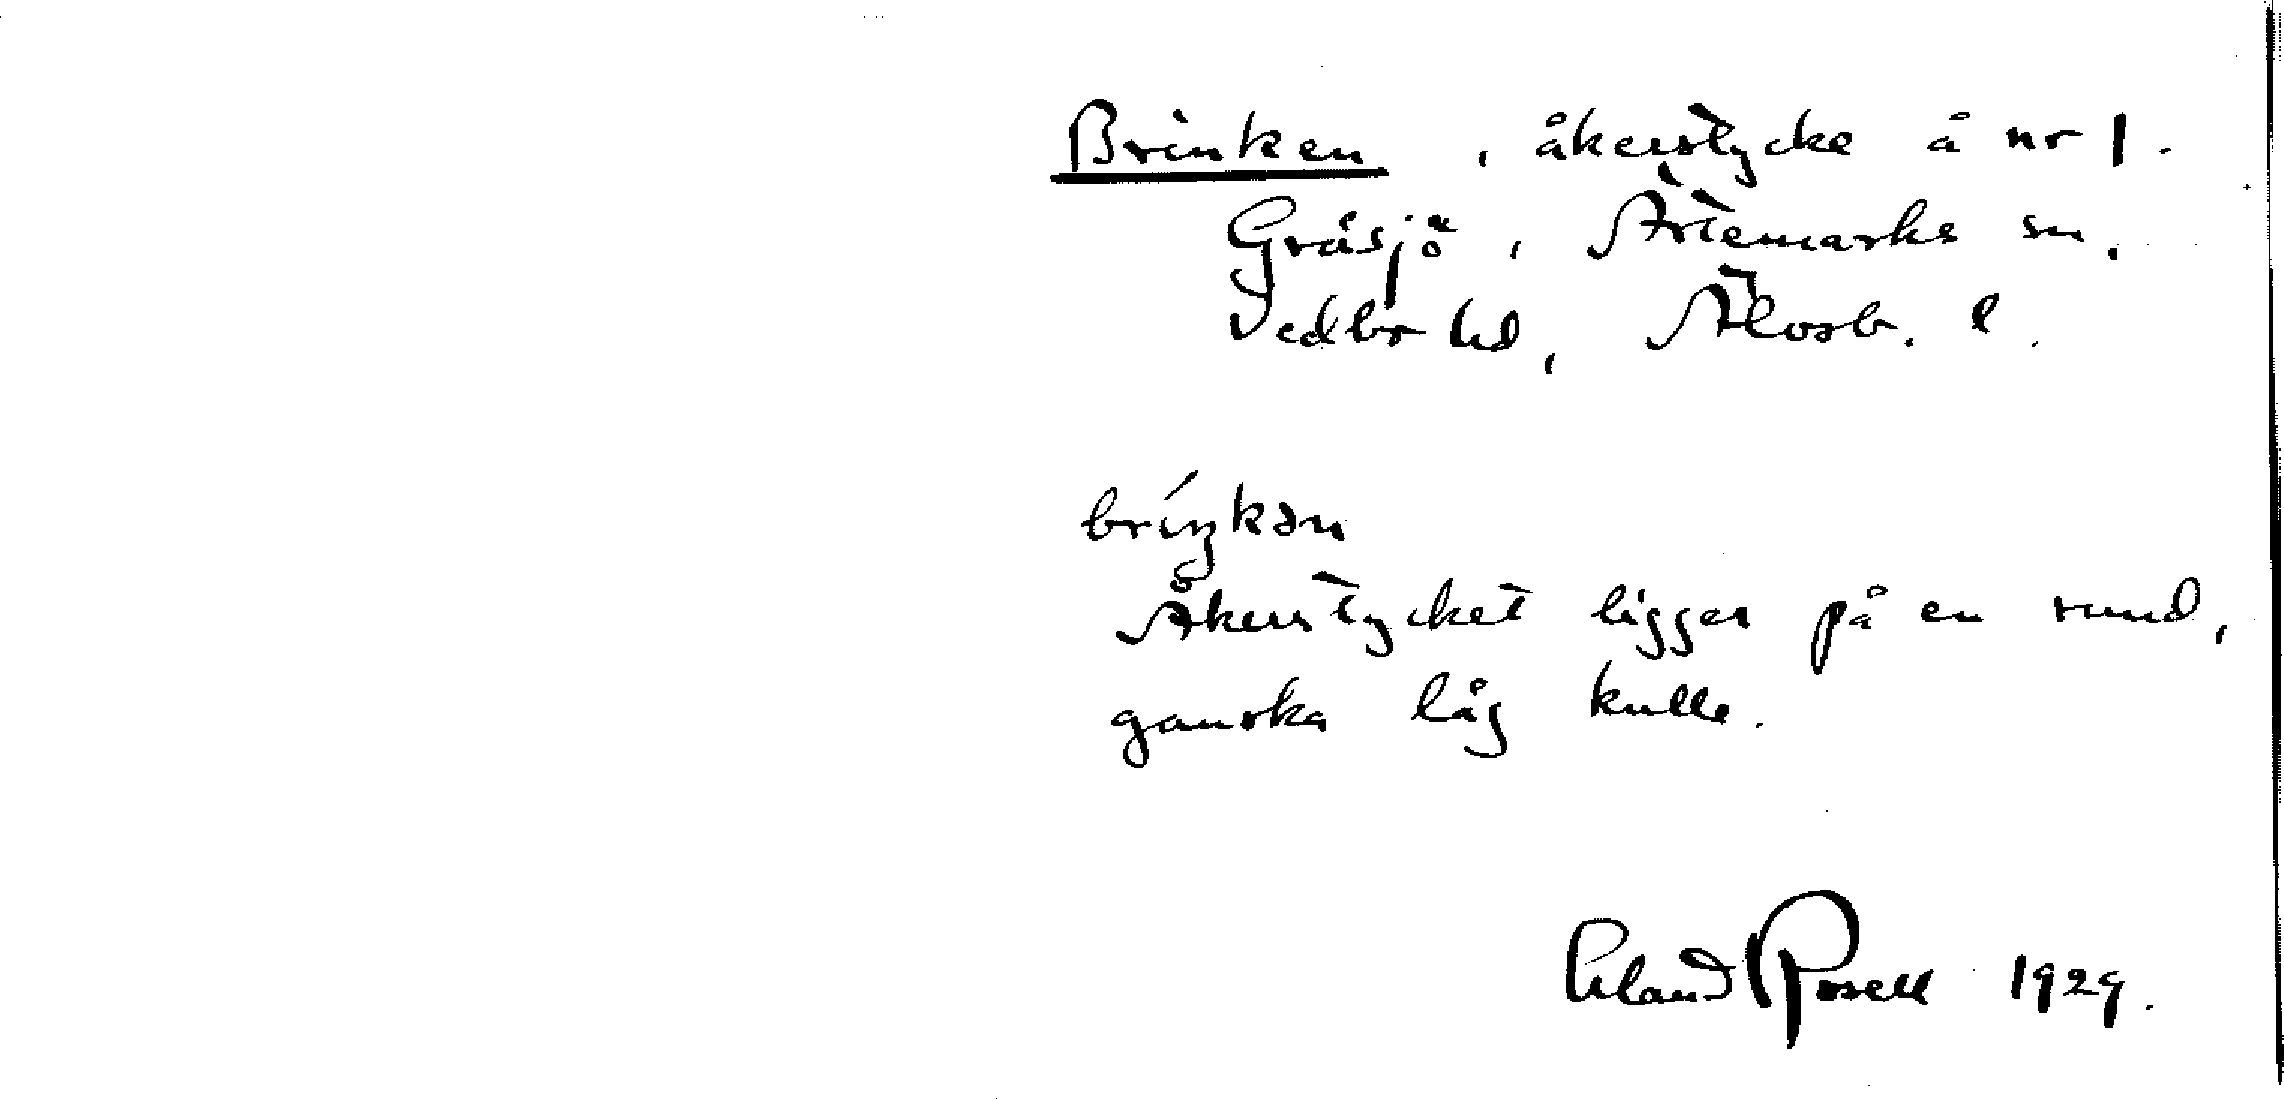 Brinken, åkerstycke å nr 1.
Gräsjö, Ärtemarks sn,
Vedbo hd, Älvsb. l.
bríŋkən
Åkerstycket ligger på en rund,
ganska låg kulle.
Erland Rosell 1929.